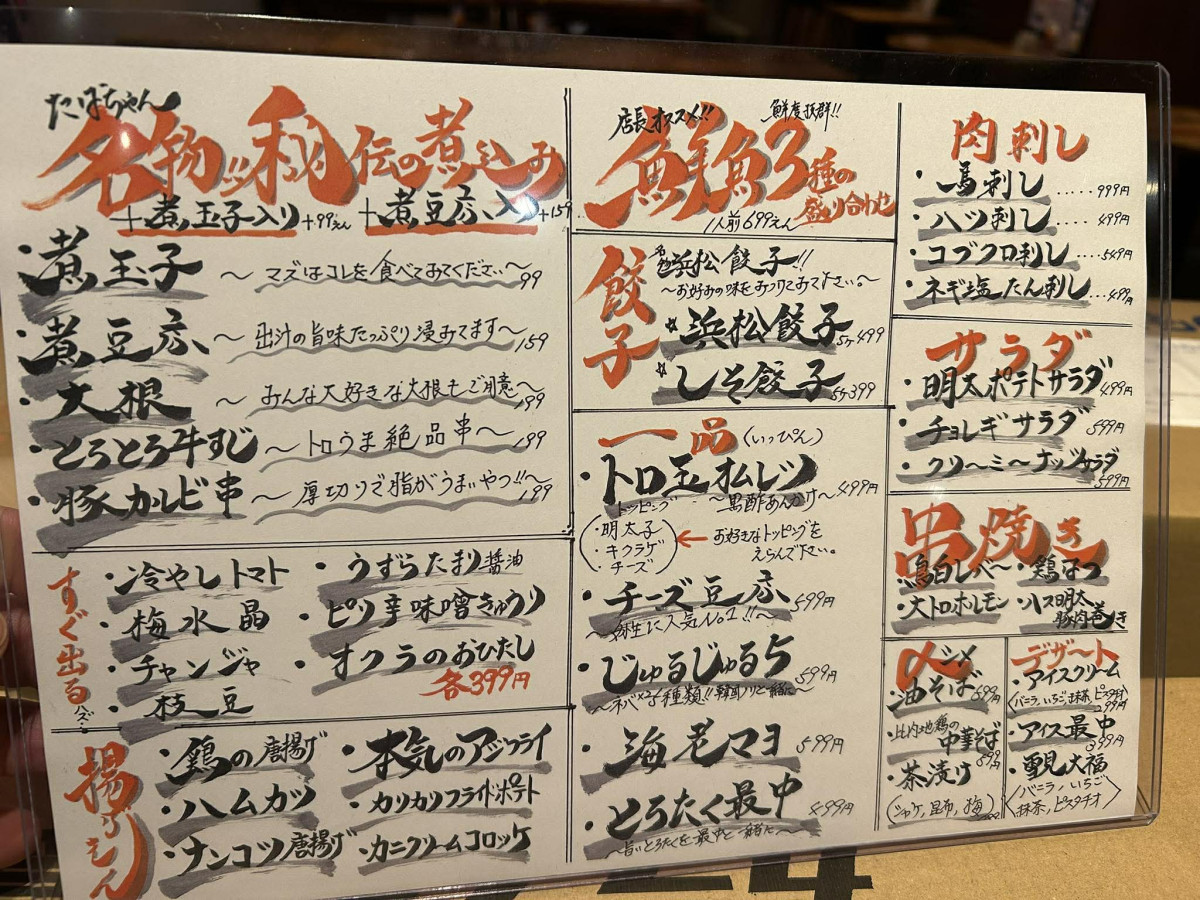 たばちゃん
名物 秘伝の煮込み
+煮玉子入り+99えん +煮豆腐入り+159
・煮玉子 〜マズはコレを食べてみてください〜99
・煮豆腐 〜出汁の旨味たっぷり浸みてます〜159
・大根 〜みんな大好きな大根もご用意〜199
・とろとろ牛すじ 〜トロうま絶品串〜199
・豚カルビ串 〜厚切りで脂がうまいやつ!!〜199
すぐ出るハズ…
・冷やしトマト
・梅水晶
・チャンジャ
・枝豆
・うずらたまり醤油
・ピリ辛味噌きゅうり
・オクラのおひたし
各399円
揚げもん
・鶏の唐揚げ
・ハムカツ
・ナンコツ唐揚げ
・本気のアジフライ
・カリカリフライドポテト
・カニクリームコロッケ
店長オススメ!!! 鮮度抜群!!
鮮魚3種の盛り合わせ
1人前699えん
餃子
名物浜松餃子!!
〜お好みの味をみつけてみて下さい。〜
☆浜松餃子5ケ499
☆しそ餃子5ケ399
一品(いっぴん)
・トロ玉オムレツ 499円
〜黒酢あんかけ〜
トッピング
・明太子
・キクラゲ
・チーズ
← お好きなトッピングを
えらんで下さい。
・チーズ豆腐 599円
に人気No1!!〜
・じゅるじゅる5 599円
〜ネバネバ5種類!!韓国ノリと一緒に〜
・海老マヨ 599円
・とろたく最中 499円
〜旨いとろたくを最中と一緒に〜
肉刺し
・馬刺し.....999円
・ハツ刺し.....499円
・コブクロ刺し....549円
・ネギ塩たん刺し...499円
サラダ
・明太ポテトサラダ499円
・チョレギサラダ599円
・クリーミーナッツサラダ599円
串焼き
・鶏白レバー
・鶏はつ
・大トロホルモン
・ハス明太豚肉巻き
〆シメ
・油そば599円
・比内地鶏の中華そば599円
・茶漬け
(シャケ,昆布,梅)
デザート
・アイスクリーム
(バニラ,いちご,抹茶,ピスタチオ)299円
・アイス最中399円
・雪見大福
(バニラ,いちご
抹茶,ピスタチオ)